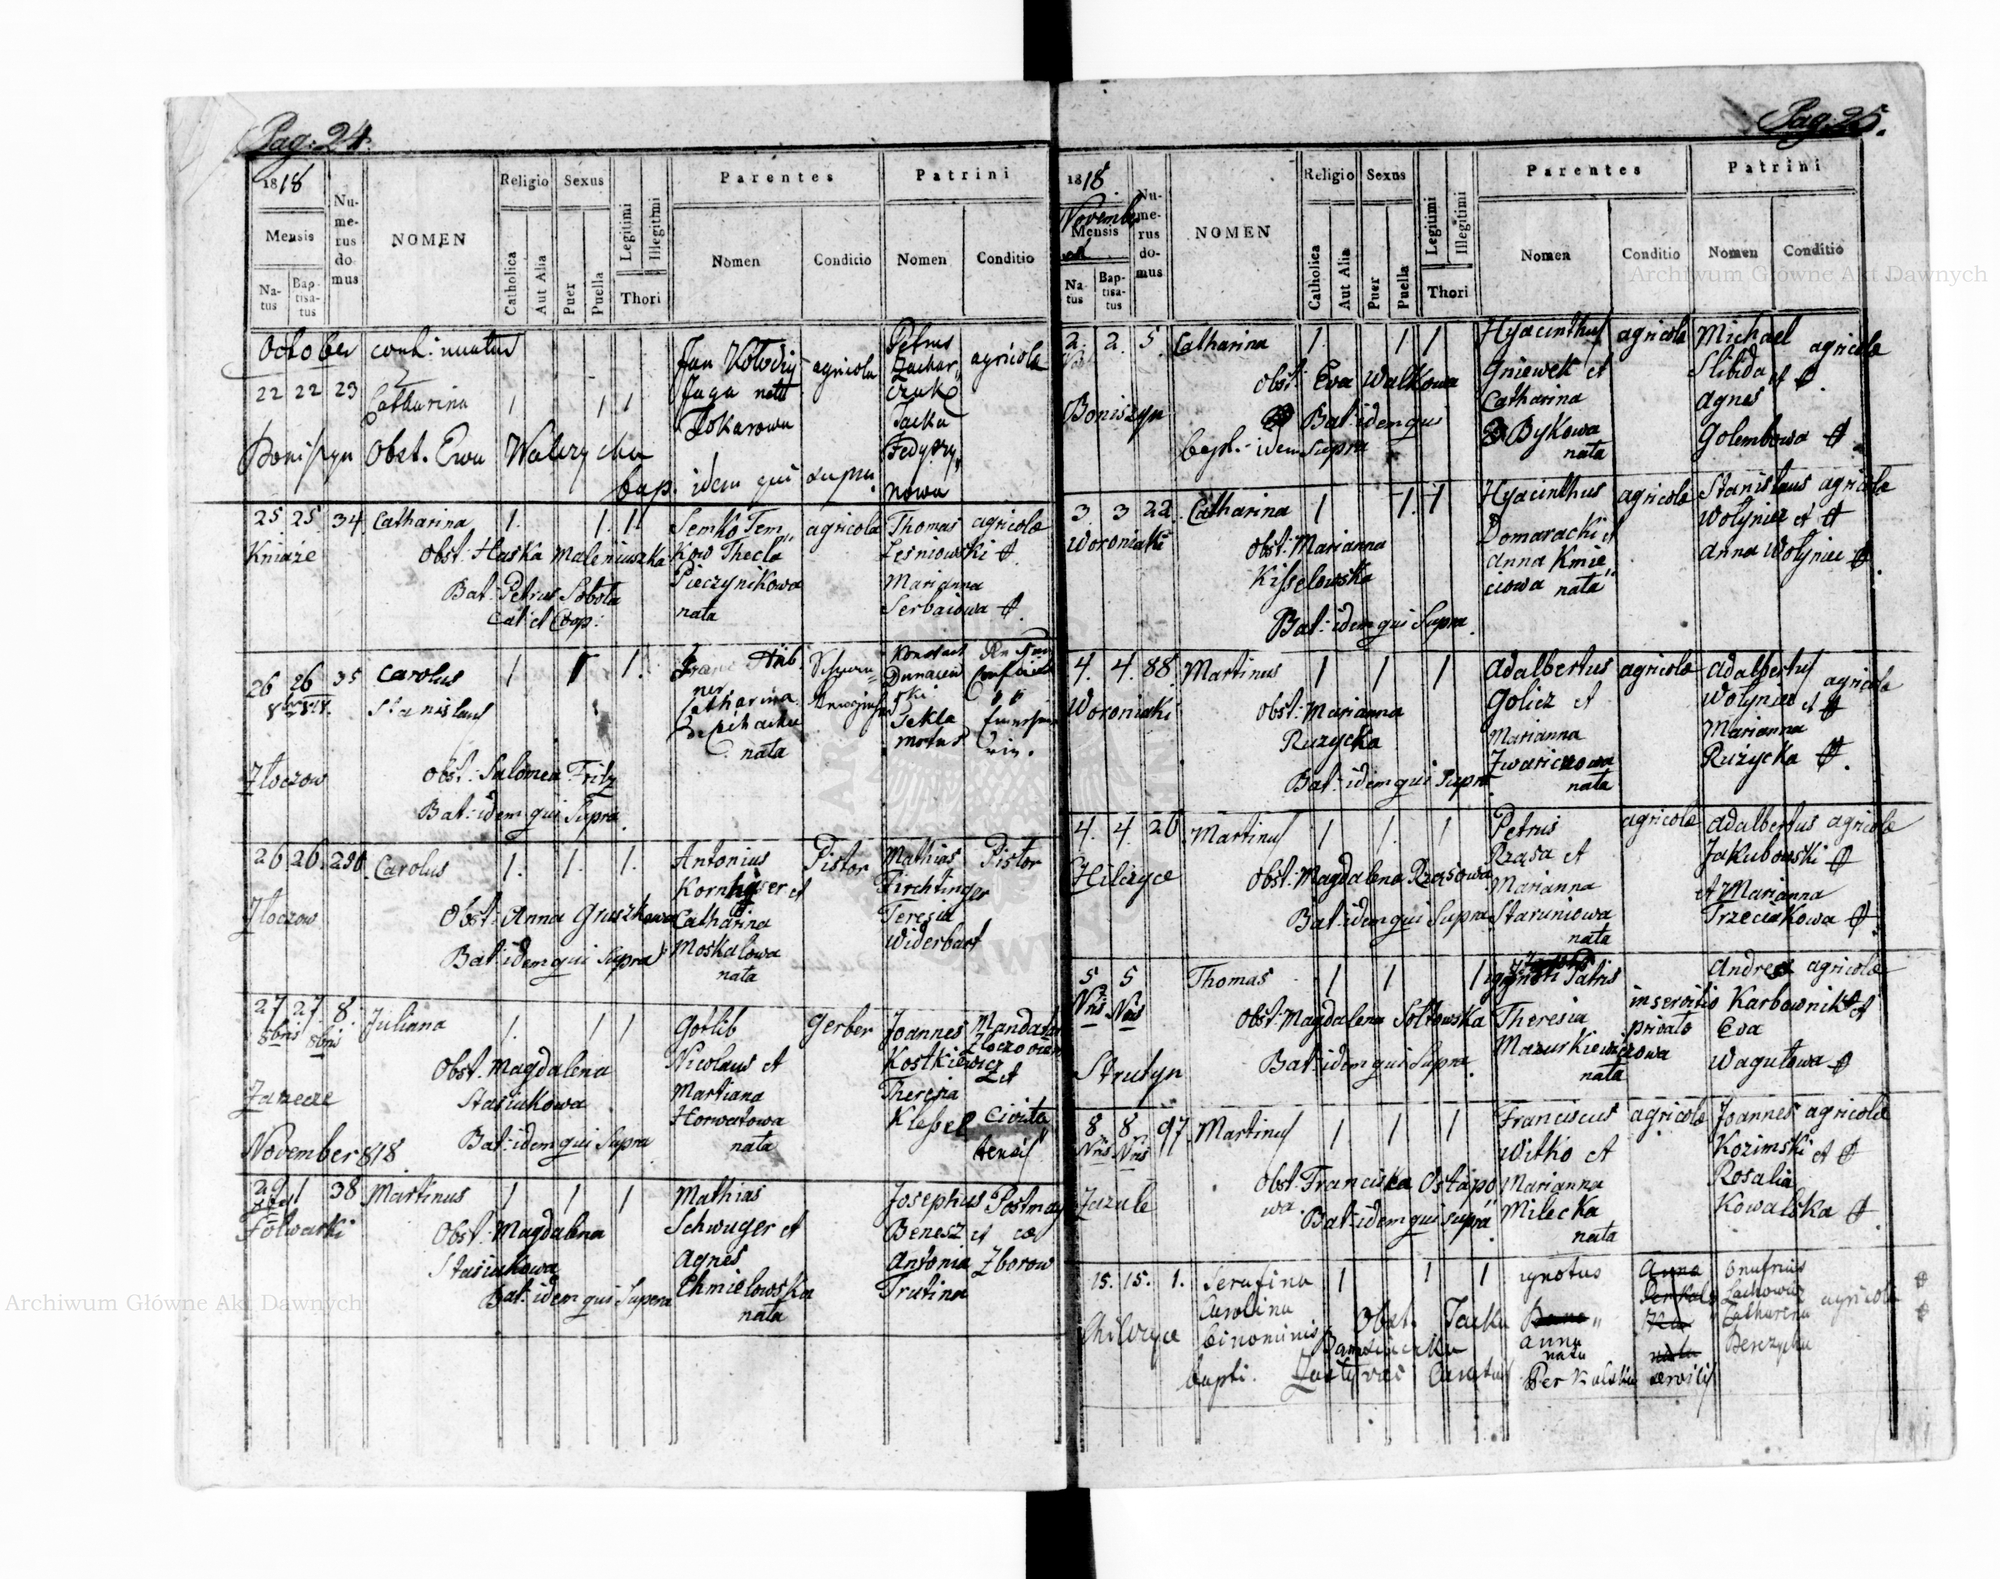 Pag. 24.
1818
Mensis
Natus
Baptisatus
Numerus domus
NOMEN
Religio
Catholica
Aut Alia
Sexus
Puer
Puella
Legitimi
Illegitimi
Thori
Parentes
Nomen
Condicio
Patrini
Nomen
Conditio
October continuatur
22 22 23 Catharina 1 1 1
agricola
Petrus
agricola
Obst. Ewa
bap. idem qui supra
25 25 34 Catharina 1. 1. 1.
Kniaże
Obst: Haska Maleniuszka
Bat: Petrus Sobota
Cat: et Coop:
Thecla
Pieczynikowa
nata
agricola
Thomas
Leśniowski
Marianna
Serbaiowa
agricolae
26 26 35 Carolus 1 1 1.
Stanislaus
Złoczow
Obst: Salomea Fritz
Bat: idem qui Supra.
Catharina
nata
Tekla
26. 26. 290 Carolus 1. 1. 1.
Złoczow
Obst: Anna Gruszkowa
Bat: idem qui Supra
Antonius
Kornheiser et
Catharina
Moskalowa
nata
Pistor
Mathias
Kirchtinger
Teresia
Widerbart
Pistor
27 27. 8. Julianna 1. 1 1
8bris 8bris
Obst: Magdalena
Stasiukowa
Bat: idem qui Supra
Zarzecze
Gotlib
Nicolaus et
Martiana
Horwatowa
nata
Gerber
Joannes
Kostkiewicz
Theresia
Klebel
et
November 818.
29 1 38 Martinus 1 1 1
Folwarki
Obst: Magdalena
Stasiukowa
Bat: idem qui Supra
Mathias
Schwuger et
Agnes
Chmielowska
nata
Josephus
Benesz et
Antonia
Trutina
Zborow
Pag. 25.
1818
November
Mensis
Natus
Baptisatus
Numerus domus
NOMEN
Religio
Catholica
Aut Alia
Sexus
Puer
Puella
Legitimi
Illegitimi
Thori
Parentes
Nomen
Conditio
Patrini
Nomen
Conditio
2. 2. 5. Catharina 1. 1 1
Boniszyn
Obst: Eva Walkowa
Bat: idem qui
Supra
Hyacinthus
Gniewek et
Catharina
Bykowa
nata
agricolae
Michael
Slibida et
Agnes
Golembowa
agricolae
3. 3 22. Catharina 1 1. 1
Woroniaki
Obst: Marianna
Kisselowska
Bat: idem qui Supra.
Hyacinthus
Domaracki et
Anna Kmie
ciowa nata
agricolae
Stanislaus
Wolyniec et
Anna Wolyniec
agricolae
4. 4. 88. Martinus 1 1 1
Woroniaki
Obst: Marianna
Ruzycka
Bat: idem qui Supra.
Adalbertus
Golicz et
Marianna
nata
agricolae
Adalbertus
Wolyniec et
Marianna
Ruzycka
agricolae
4. 4. 26 Martinus 1 1. 1
Hilczyce
Obst: Magdalena Rzasowa
Bat: idem qui Supra
Petrus
Rzasa et
Marianna
Staruniowa
nata
agricolae
Adalbertus
Jakubowski
et Marianna
Trzeciakowa
agricolae
5 5 Thomas 1 1 1
Nris Nris
Strutyn
Obst: Magdalena Soltowska
Bat: idem qui Supra.
ignoti Patris
Theresia
Mazurkiewiczowa
nata
in servitio
privato
Andreas
Karbownik et
Eva
Wagutowa
agricolae
8 8 97 Martinus 1 1 1
Nris Nris
Jazule
Obst: Franciska Ostapo
wa
Bat: idem qui Supra
Franciscus
Witko et
Marianna
Milecka
nata
agricolae
Joannes
Kozimski et
Rosalia
Kowalska
agricolae
15. 15. 1. Serafina 1 1 1
Carolina
binominis
bapti.
Obst.
ignotus
Anna
nata
Onufrius
Catharina
agricolae
Archiwum Główne Akt Dawnych
Archiwum Główne Akt Dawnych